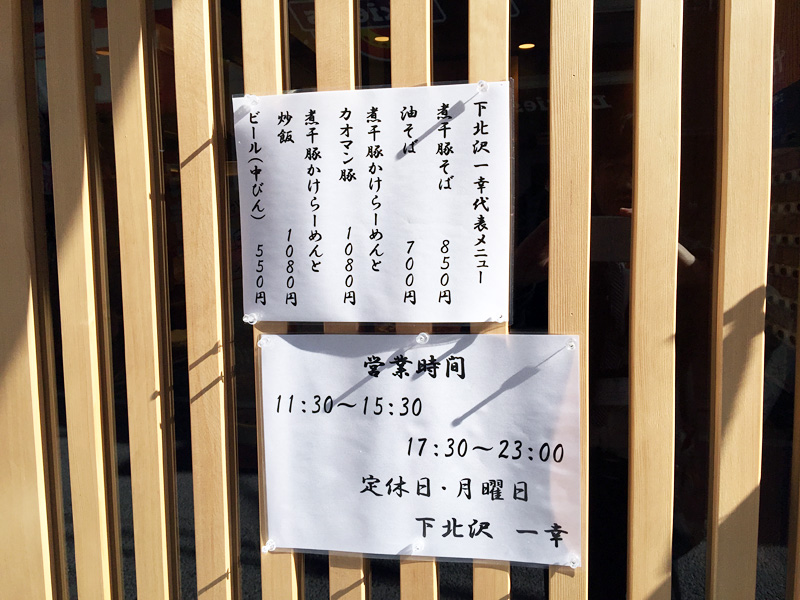 下北沢一幸代表メニュー
煮干豚そば 850円
油そば 700円
煮干豚かけらーめんと
カオマン豚 1080円
煮干豚かけらーめんと
炒飯 1080円
ビール(中びん) 550円
営業時間
11:30～15:30
17:30～23:00
定休日・月曜日
下北沢 一幸